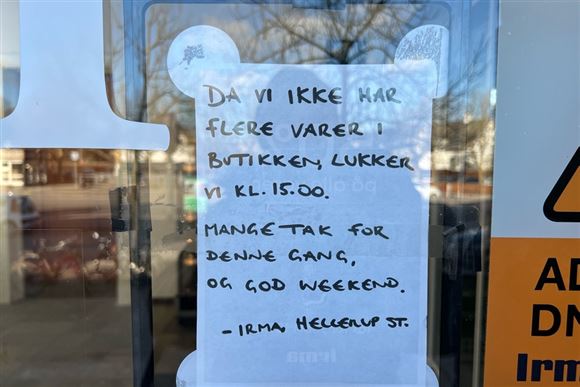 DA VI IKKE HAR
FLERE VARER I
BUTIKKEN, LUKKER
VI KL. 15.00.
MANGE TAK FOR
DENNE GANG,
OG GOD WEEKEND.
- IRMA, HELLERUP ST.
Irma